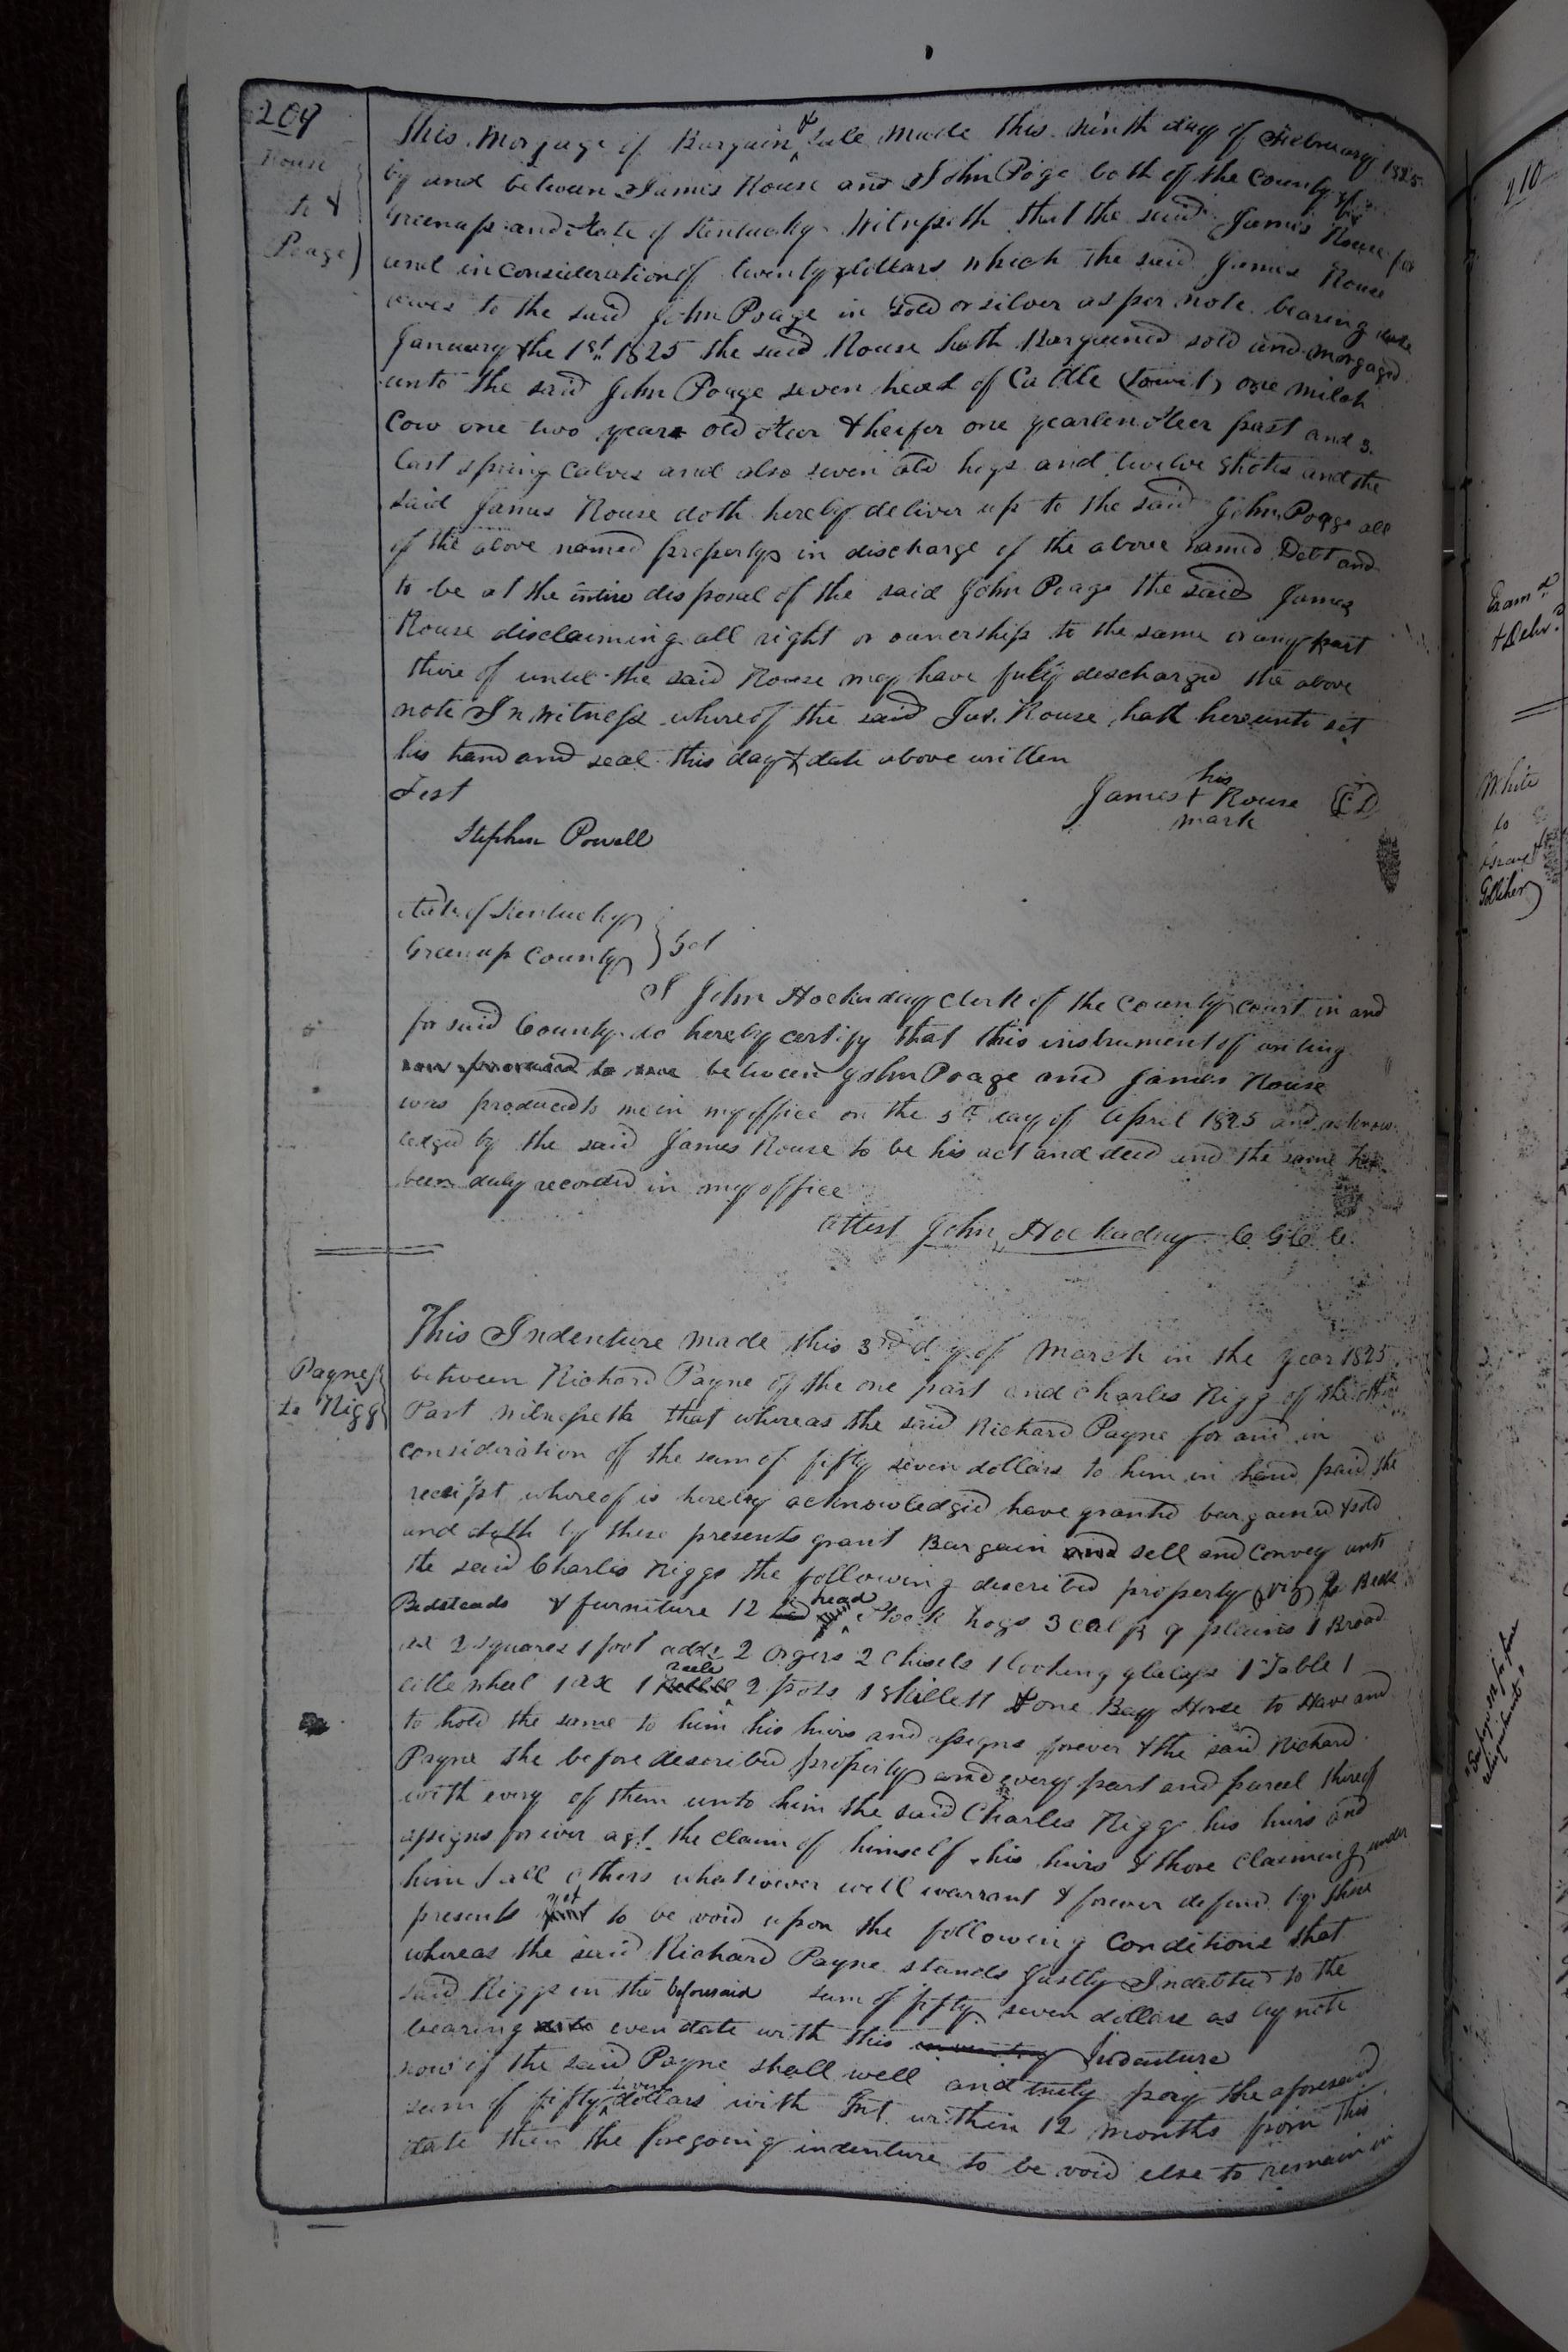 209
Rouse
to
Poage
This Morgage of Bargain & Sale Made this ninth day of February 1825
by and between James Rouse and John Poage both of the County of
Greenup and State of Kentucky Witnesseth that the said James Rouse for
and in consideration of twenty dollars which the said James Rouse
owes to the said John Poage in Gold or silver as per note bearing date
January the 1st 1825 the said Rouse hath Bargained sold and morgaged
unto the said John Poage seven head of Cattle (towit) one milch
Cow one two year old steer & heifer one yearlen steer past and 3
last spring Calves and also seven old hogs and twelve shotes and the
said James Rouse doth hereby deliver up to the said John Poage all
of the above named property in discharge of the above named Debt and
to be at the intire disposal of the said John Poage the said James
Rouse disclaiming all right or ownership to the same or any part
there of until the said Rouse may have fully descharged the above
note In Witness whereof the said Jas. Rouse hath hereunto set
his hand and seal this day & date above written
Test
his
James + Rouse
mark
Stephen Powell
State of Kentucky
Greenup County } Sct
I John Hockaday Clerk of the County Court in and
for said County do hereby certify that this instrument of writing
between John Poage and James Rouse
was produced to me in my office on the 5th day of April 1825 and acknow
ledged by the said James Rouse to be his act and deed and the same has
been duly recorded in my office
Attest John Hockaday C G C C
Payne
to Rigg
This Indenture made this 3rd dy of March in the year 1825
between Richard Payne of the one part and Charles Rigg of the other
Part witnesseth that whereas the said Richard Payne for and in
consideration of the sum of fifty seven dollars to him in hand paid the
receipt whereof is hereby acknowledged have granted bargained & sold
and doth by these presents grant Bargain and sell and convey unto
the said Charles Riggs the following described property (viz) 2 Beds
Bedsteads & furniture 12 head Stock hogs 3 calf 9 plains 1 Broad
ax 2 squares 1 foot adds 2 orgers 2 chisels 1 looking glass 1 Table 1
little wheel 1 ax 1 reele 2 pots 1 skillett & one Bay Horse to Have and
to hold the same to him his heirs and assigns forever & the said Richard
Payne the before described property and every part and parcel thereof
with every of them unto him the said Charles Rigg his heirs and
assigns for ever agt. the claim of himself his heirs & those Claiming under
him & all others whatsoever will warrant & forever defend by these
presents yet to be void upon the following Conditions that
whereas the said Richard Payne stands Justly Indebted to the
said Riggs in the beforesaid sum of fifty seven dollars as by note
bearing even date with this Indenture
now if the said Payne shall well and truly pay the aforesaid
sum of fifty seven dollars with Int. within 12 months from this
date then the foregoing indenture to be void else to remain in
210
Examd
& Delv.d
White
to
Golliher